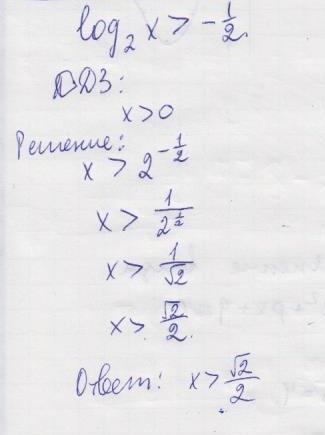 log₂ x > -1/2.
ОДЗ:
x>0
Решение:
x > 2^(-1/2)
x > 1/2^(1/2)
x > 1/√2
x > √2/2.
Ответ: x > √2/2